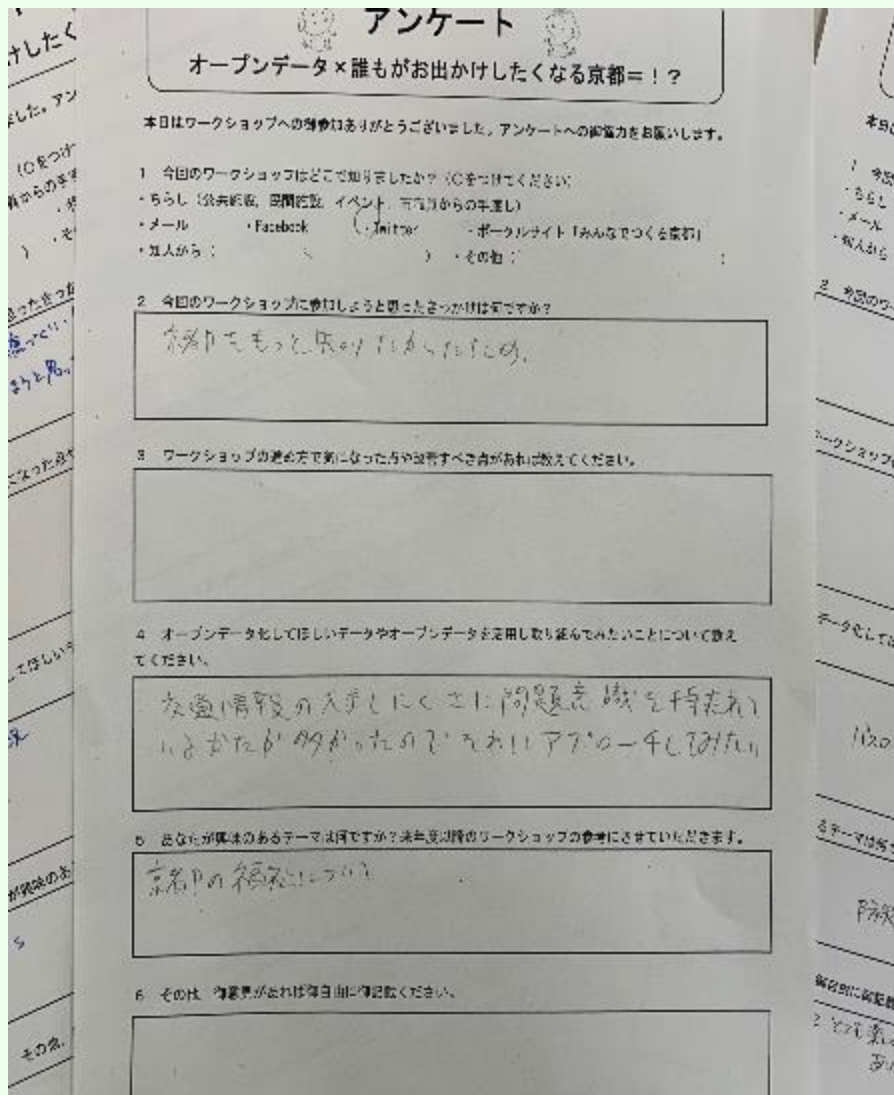 アンケート
オープンデータ×誰もがお出かけしたくなる京都=!?
本日はワークショップへの御参加ありがとうございました。アンケートへの御協力をお願いします。
1 今回のワークショップはどこで知りましたか?(○をつけてください)
・ちらし(公共施設、民間施設、イベント、市職員からの手渡し)
・メール ・Facebook ・Twitter ・ポータルサイト「みんなでつくる京都」
・知人から( ) ・その他( )
2 今回のワークショップに参加しようと思ったきっかけは何ですか?
京都をもっと知りたかったため。
3 ワークショップの進め方で気になった点や改善すべき点があれば教えてください。
4 オープンデータ化してほしいデータやオープンデータを活用し取り組んでみたいことについて教え
てください。
交通情報の入手しにくさに問題意識を持たれて
いるかたが多かったのでそれにアプローチしてみたい
5 あなたが興味のあるテーマは何ですか?来年度以降のワークショップの参考にさせていただきます。
京都の福祉について
6 その他、御意見があれば御自由に御記載ください。